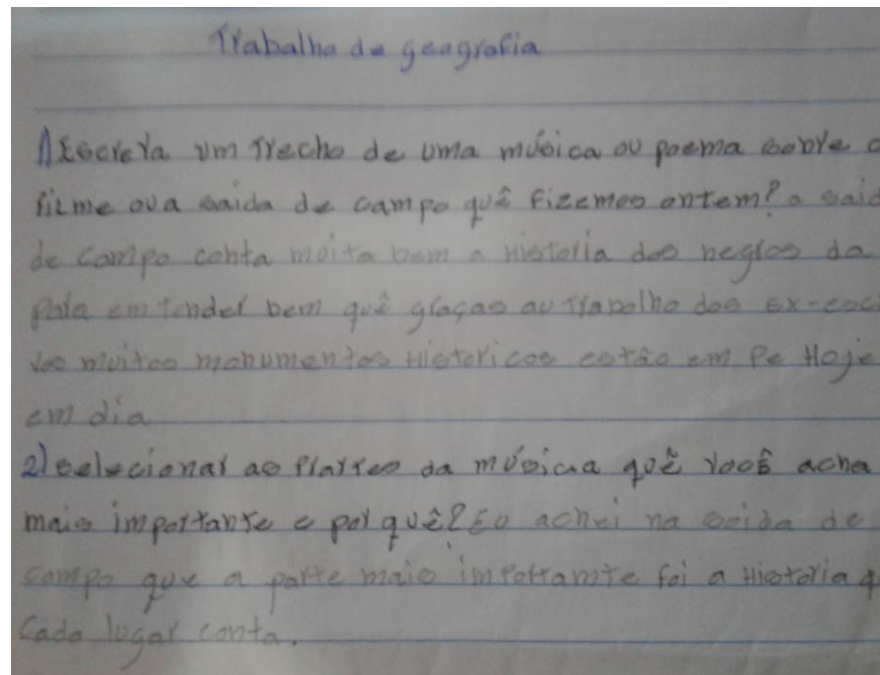 Trabalho de geografia
1) Escreva um trecho de uma música ou poema sobre o
filme ou a saida de campo quê fizemos ontem? a said
de campo conta muito bem a Historia dos negros da
para em tender bem quê graças au trabalho dos ex-esc
vos muitos monumentos Historicos estão em Pe Hoje
em dia
2) selecionar as Partes da música quê você acha
mais importante e por quê? Eu achei na saida de
campo que a parte mais importamte foi a Historia q
Cada lugar conta.